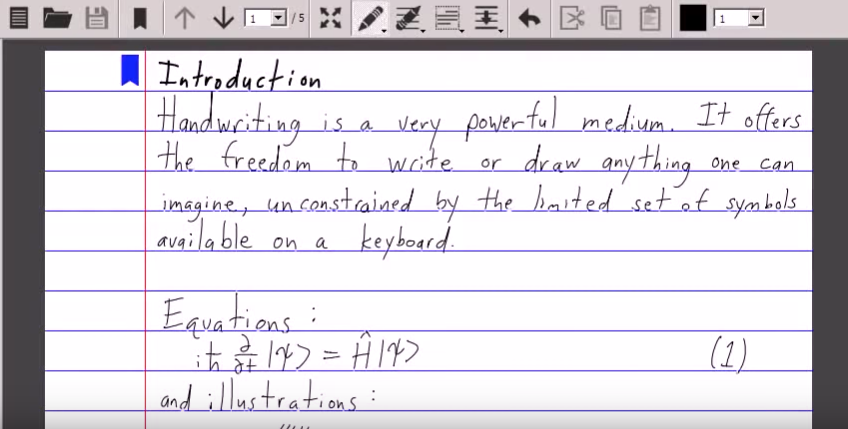 1 / 5 1
Introduction
Handwriting is a very powerful medium. It offers
the freedom to write or draw anything one can
imagine, unconstrained by the limited set of symbols
available on a keyboard.
Equations:
iħ ∂/∂t |ψ⟩ = Ĥ|ψ⟩ (1)
and illustrations: